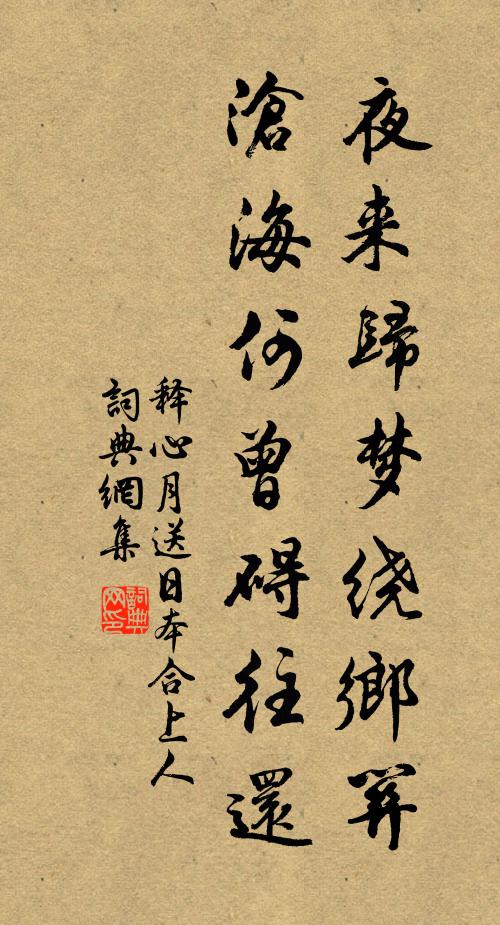 夜来歸梦绕鄉關
滄海何曾碍往還
释心月送日本合上人
詞典網集
詞典
网印